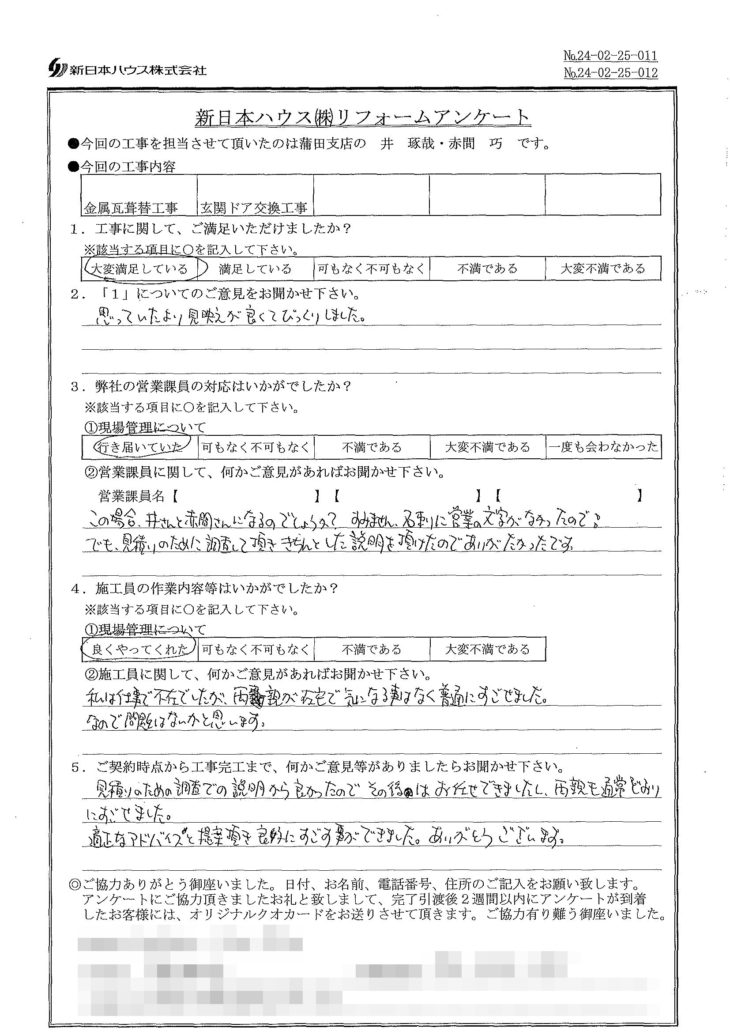 新日本ハウス株式会社
№24-02-25-011
№24-02-25-012
新日本ハウス㈱リフォームアンケート
●今回の工事を担当させて頂いたのは蒲田支店の 井 琢哉・赤間 巧 です。
●今回の工事内容
金属瓦葺替工事 玄関ドア交換工事
1．工事に関して、ご満足いただけましたか？
※該当する項目に○を記入して下さい。
大変満足している 満足している 可もなく不可もなく 不満である 大変不満である
2．「1」についてのご意見をお聞かせ下さい。
思っていたより見映えが良くてびっくりしました。
3．弊社の営業課員の対応はいかがでしたか？
※該当する項目に○を記入して下さい。
①現場管理について
行き届いていた 可もなく不可もなく 不満である 大変不満である 一度も会わなかった
②営業課員に関して、何かご意見があればお聞かせ下さい。
営業課員名【 】【 】【 】
この場合、井さんと赤間さんになるのでしょうか？ すみません、名刺に営業の文字がなかったので。
でも、見積りのために調査して頂ききちんとした説明を頂けたのでありがたかったです。
4．施工員の作業内容等はいかがでしたか？
※該当する項目に○を記入して下さい。
①現場管理について
良くやってくれた 可もなく不可もなく 不満である 大変不満である
②施工員に関して、何かご意見があればお聞かせ下さい。
私は仕事で不在でしたが、両親が在宅で気になる事はなく普通にすごせました。
なので問題はないかと思います。
5．ご契約時点から工事完工まで、何かご意見等がありましたらお聞かせ下さい。
見積りのための調査での説明から良かったのでその後はお任せできましたし、両親も通常どおり
にすごせました。
適正なアドバイスと提案頂き良好にすごす事ができました。ありがとうございます。
◎ご協力ありがとう御座いました。日付、お名前、電話番号、住所のご記入をお願い致します。
アンケートにご協力頂きましたお礼と致しまして、完了引渡後2週間以内にアンケートが到着
したお客様には、オリジナルクオカードをお送りさせて頂きます。ご協力有り難う御座いました。